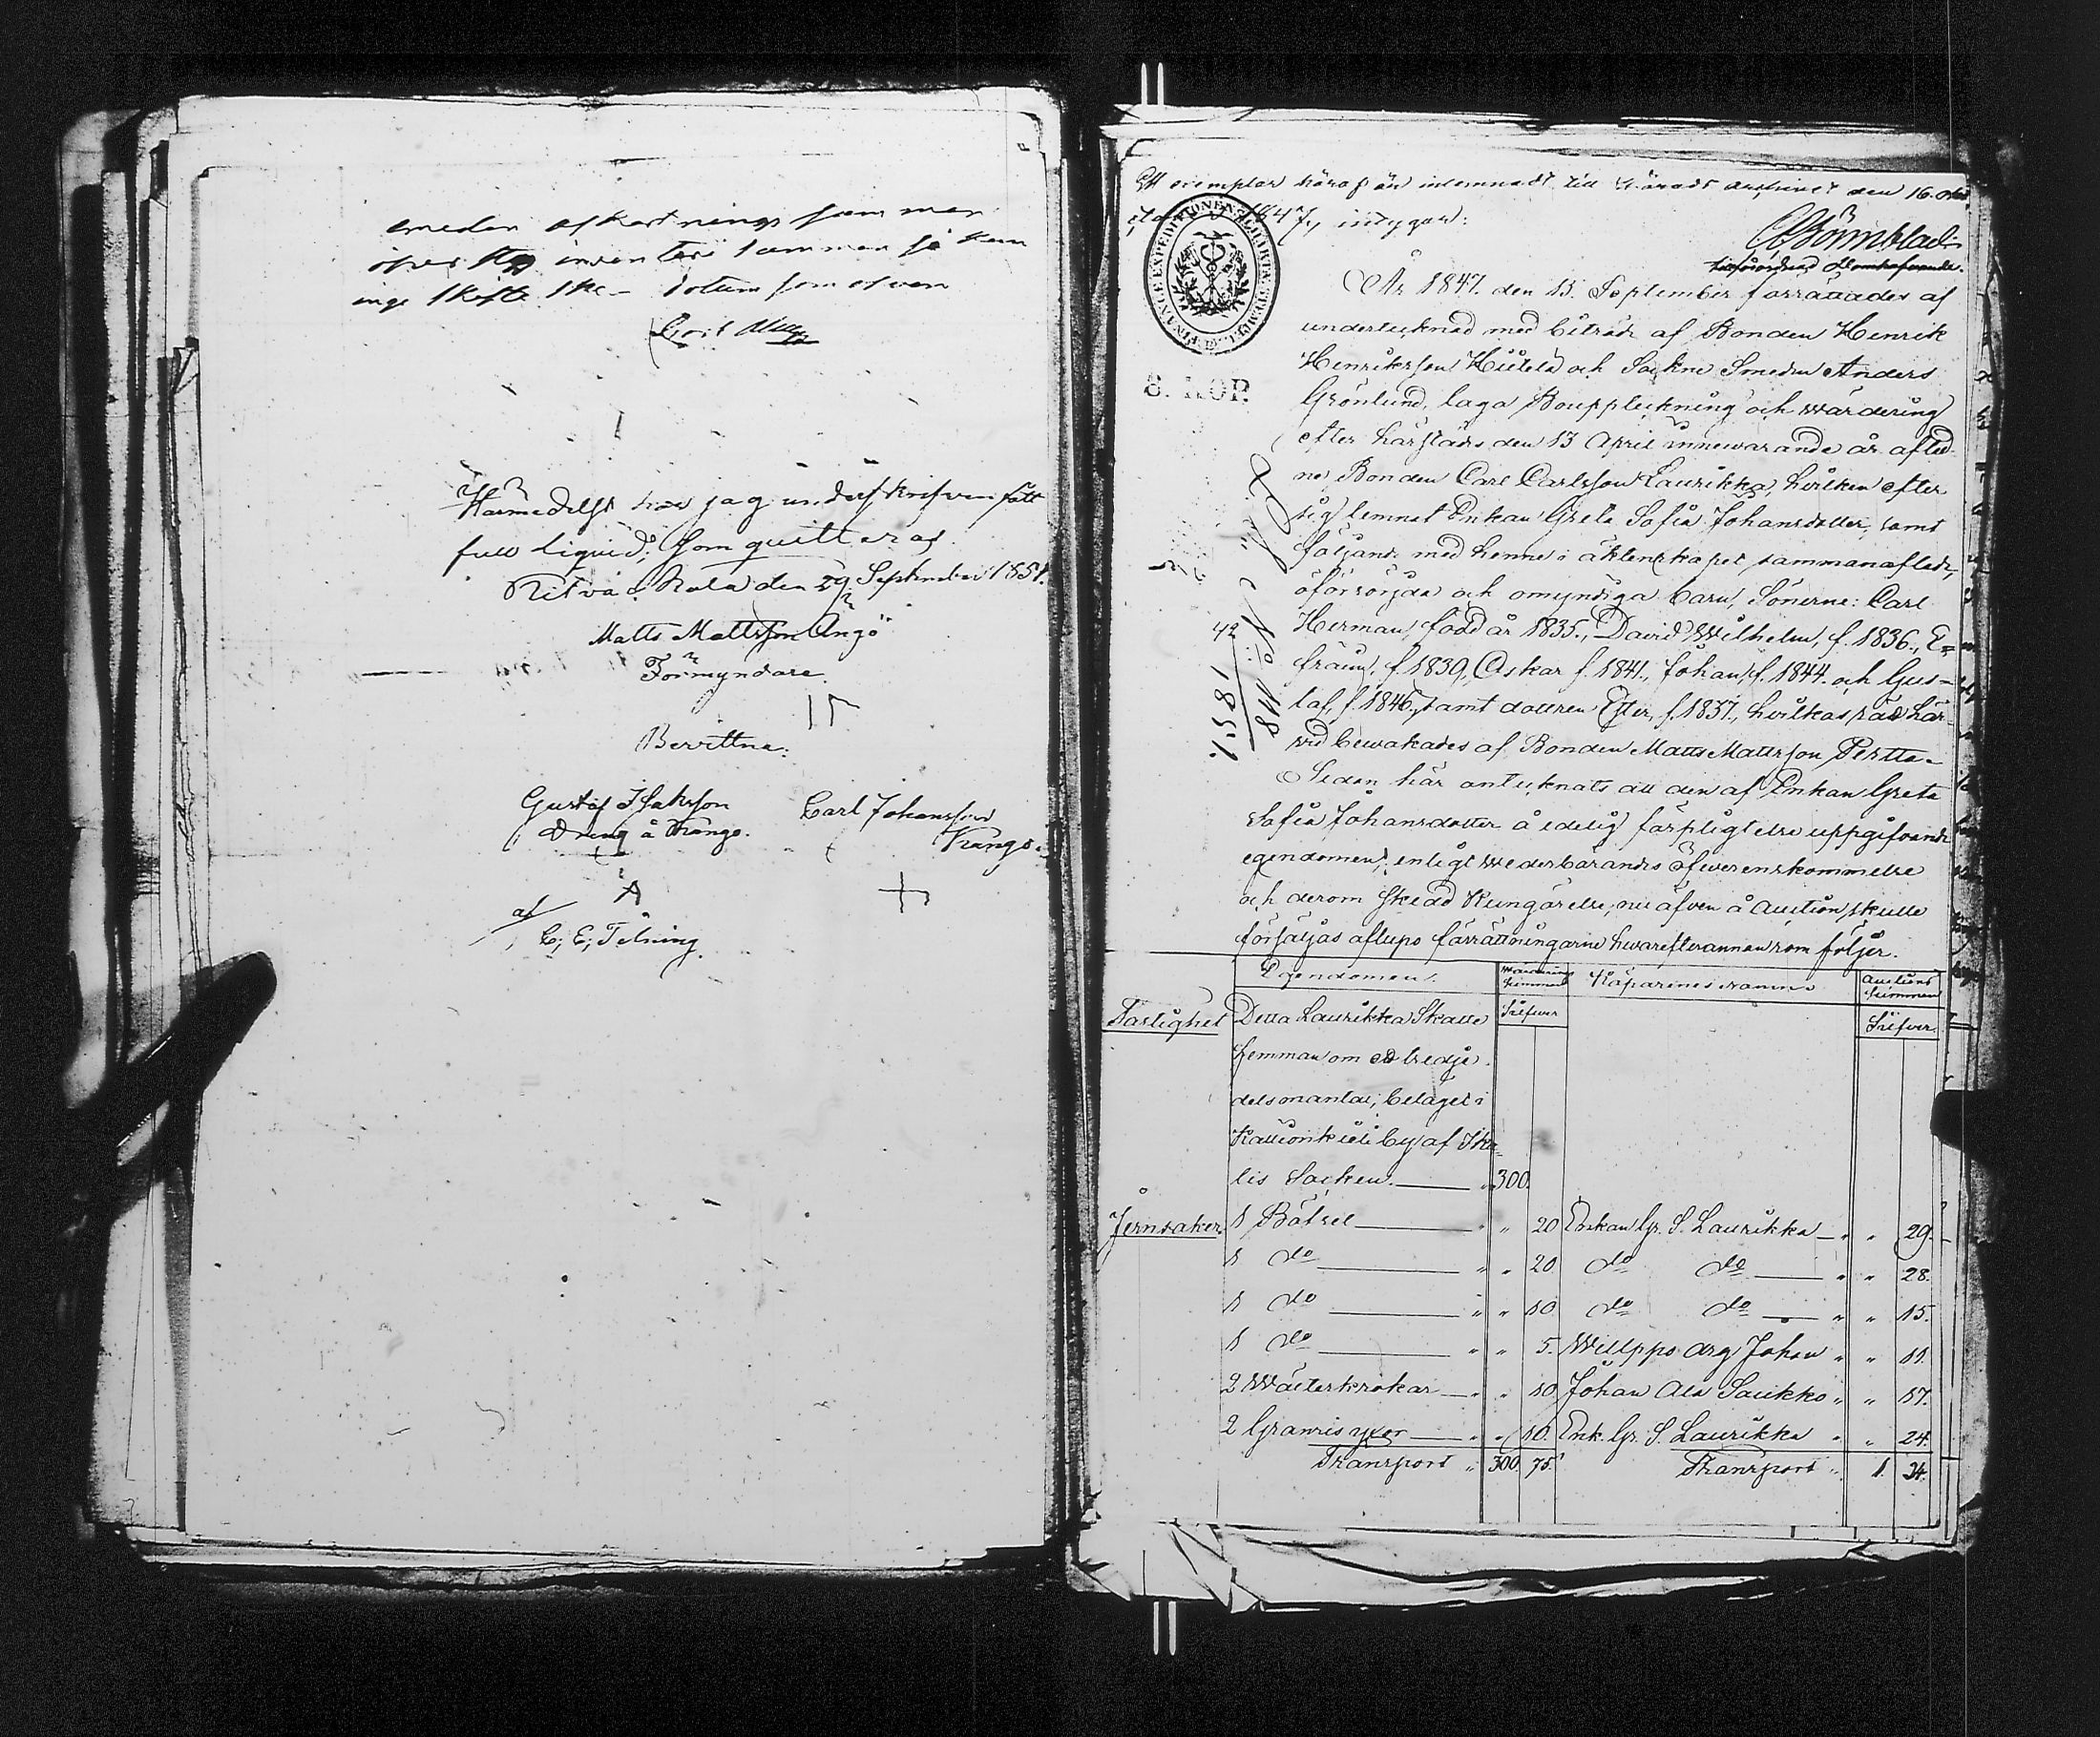 emedan afkortnings summan
öfver inventari summan så kan
inge skifte ske – Datum som ofvan
Härmedelst har jag underskrifven fått
full liquid; som quitteras
Ritvala den 29 September 1851.
Matts Mattsson Ångö
Förmyndare.
Bevittna:
Gustaf Isaksson Carl Johansson
Dräng å Kångo. Kångo.
af
C; E; Telning.
Ett exemplar häraf är inlemnadt till Härads archivet den 16. 
1847, intygar:
CABömblad
8. KOP.
År 1847. den 15. September förrättades af
undertecknad med biträde af Bonden Henrik
Henriksson Hiitola och Sockne Smeden Anders
Grönlund, laga Bouppteckning och wärdering
efter härstädes den 13 April innewarande år aflid-
ne Bonden Carl Carlsson Laurikka, hvilken efter
sig lemnat Enkan Greta Sofia Johansdotter, samt
följande med henne i äktenskapet sammanaflede,
oförsörjda och omyndiga barn, Sönerne: Carl
Herman, född år 1835., David Wilhelm, f. 1836., E=
fraim, f. 1839, Oskar f. 1841., Johan, f. 1844. och Gus-
taf, f. 1846., samt dottren Ester, f. 1837., hvilkas räd här-
wid bewakades af Bonden Matts Mattsson Pertta.
Sedan här antecknats all den af Enkan Greta
Sofia Johansdotter å edelig förpligtelse uppgifvande
egendomen, enligt wederbörandes öfwerenskommelse
och derom skedd Kungörelse, nu äfven å Auction skulle
försäljas aflupo förrättningarne hwarefterannan som följer.
42
1581.
Egendomen. Wärderings summan Köparenes namn Auctions summan
Silfwer Silfwer.
Fastighet Detta Laurikka Skatte
hemman om ett tredje
dels mantal, beläget i
Kallionkieli by af Ika-
lis Socken. " 300.
Jernsaker. 1 Båtsel " " 20 Enkan Gr. S. Laurikka " " 29.
1 do " " 20 do do " " 28.
1 do " " 10 do do " " 15.
1 do " " 5. Willppo drg Johan " " 11.
2 " " 10 Johan Ala Saukko " " 17.
2 Granris yxor " " 10. Enk. Gr. S. Laurikka " " 24.
Transport " 300 75. Transport " 1. 24.